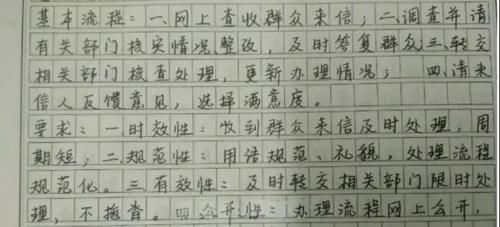 基本流程：一、网上查收群众来信；二、调查并请
有关部门核实情况、整改，及时答复群众；三、转交
相关部门核查处理，更新办理情况；四、请来
信人反馈意见，选择满意度。
要求：一、时效性：收到群众来信及时处理，周
期短；二、规范性：用语规范、礼貌，处理流程
规范化。三、有效性：及时转交相关部门限时处
理，不拖沓。四、公开性：办理流程网上公开，